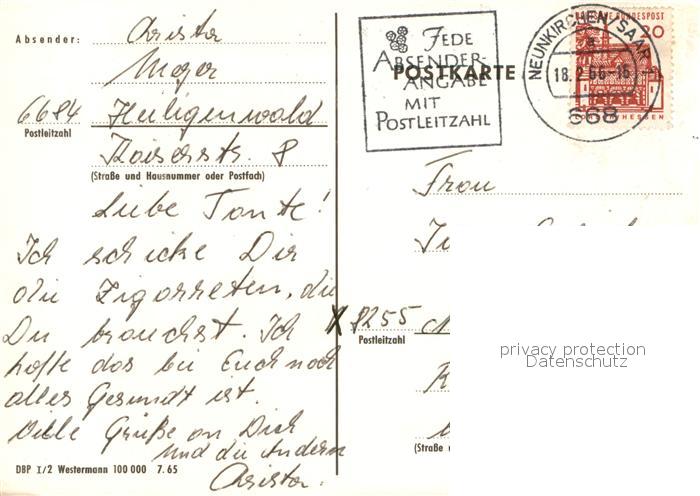 Absender: Christa
Meyer
6684 Heiligenwald
Postleitzahl
Kaiserstr. 8
(Straße und Hausnummer oder Postfach)
Liebe Tante!
Ich schicke Dir
die Zigaretten, die
Du brauchst. Ich
hoffe das bei Euch noch
alles Gesundt ist.
Viele Grüße an Dich
und die Andern
Christa.
DBP I/2 Westermann 100 000 7.65
JEDE
ABSENDER-
ANGABE
MIT
POSTLEITZAHL
POSTKARTE
NEUNKIRCHEN, SAAR
18.2.66-16
668
DEUTSCHE BUNDESPOST
20
HESSEN
Frau
X 8255
Postleitzahl
(Straße u
privacy protection
Datenschutz